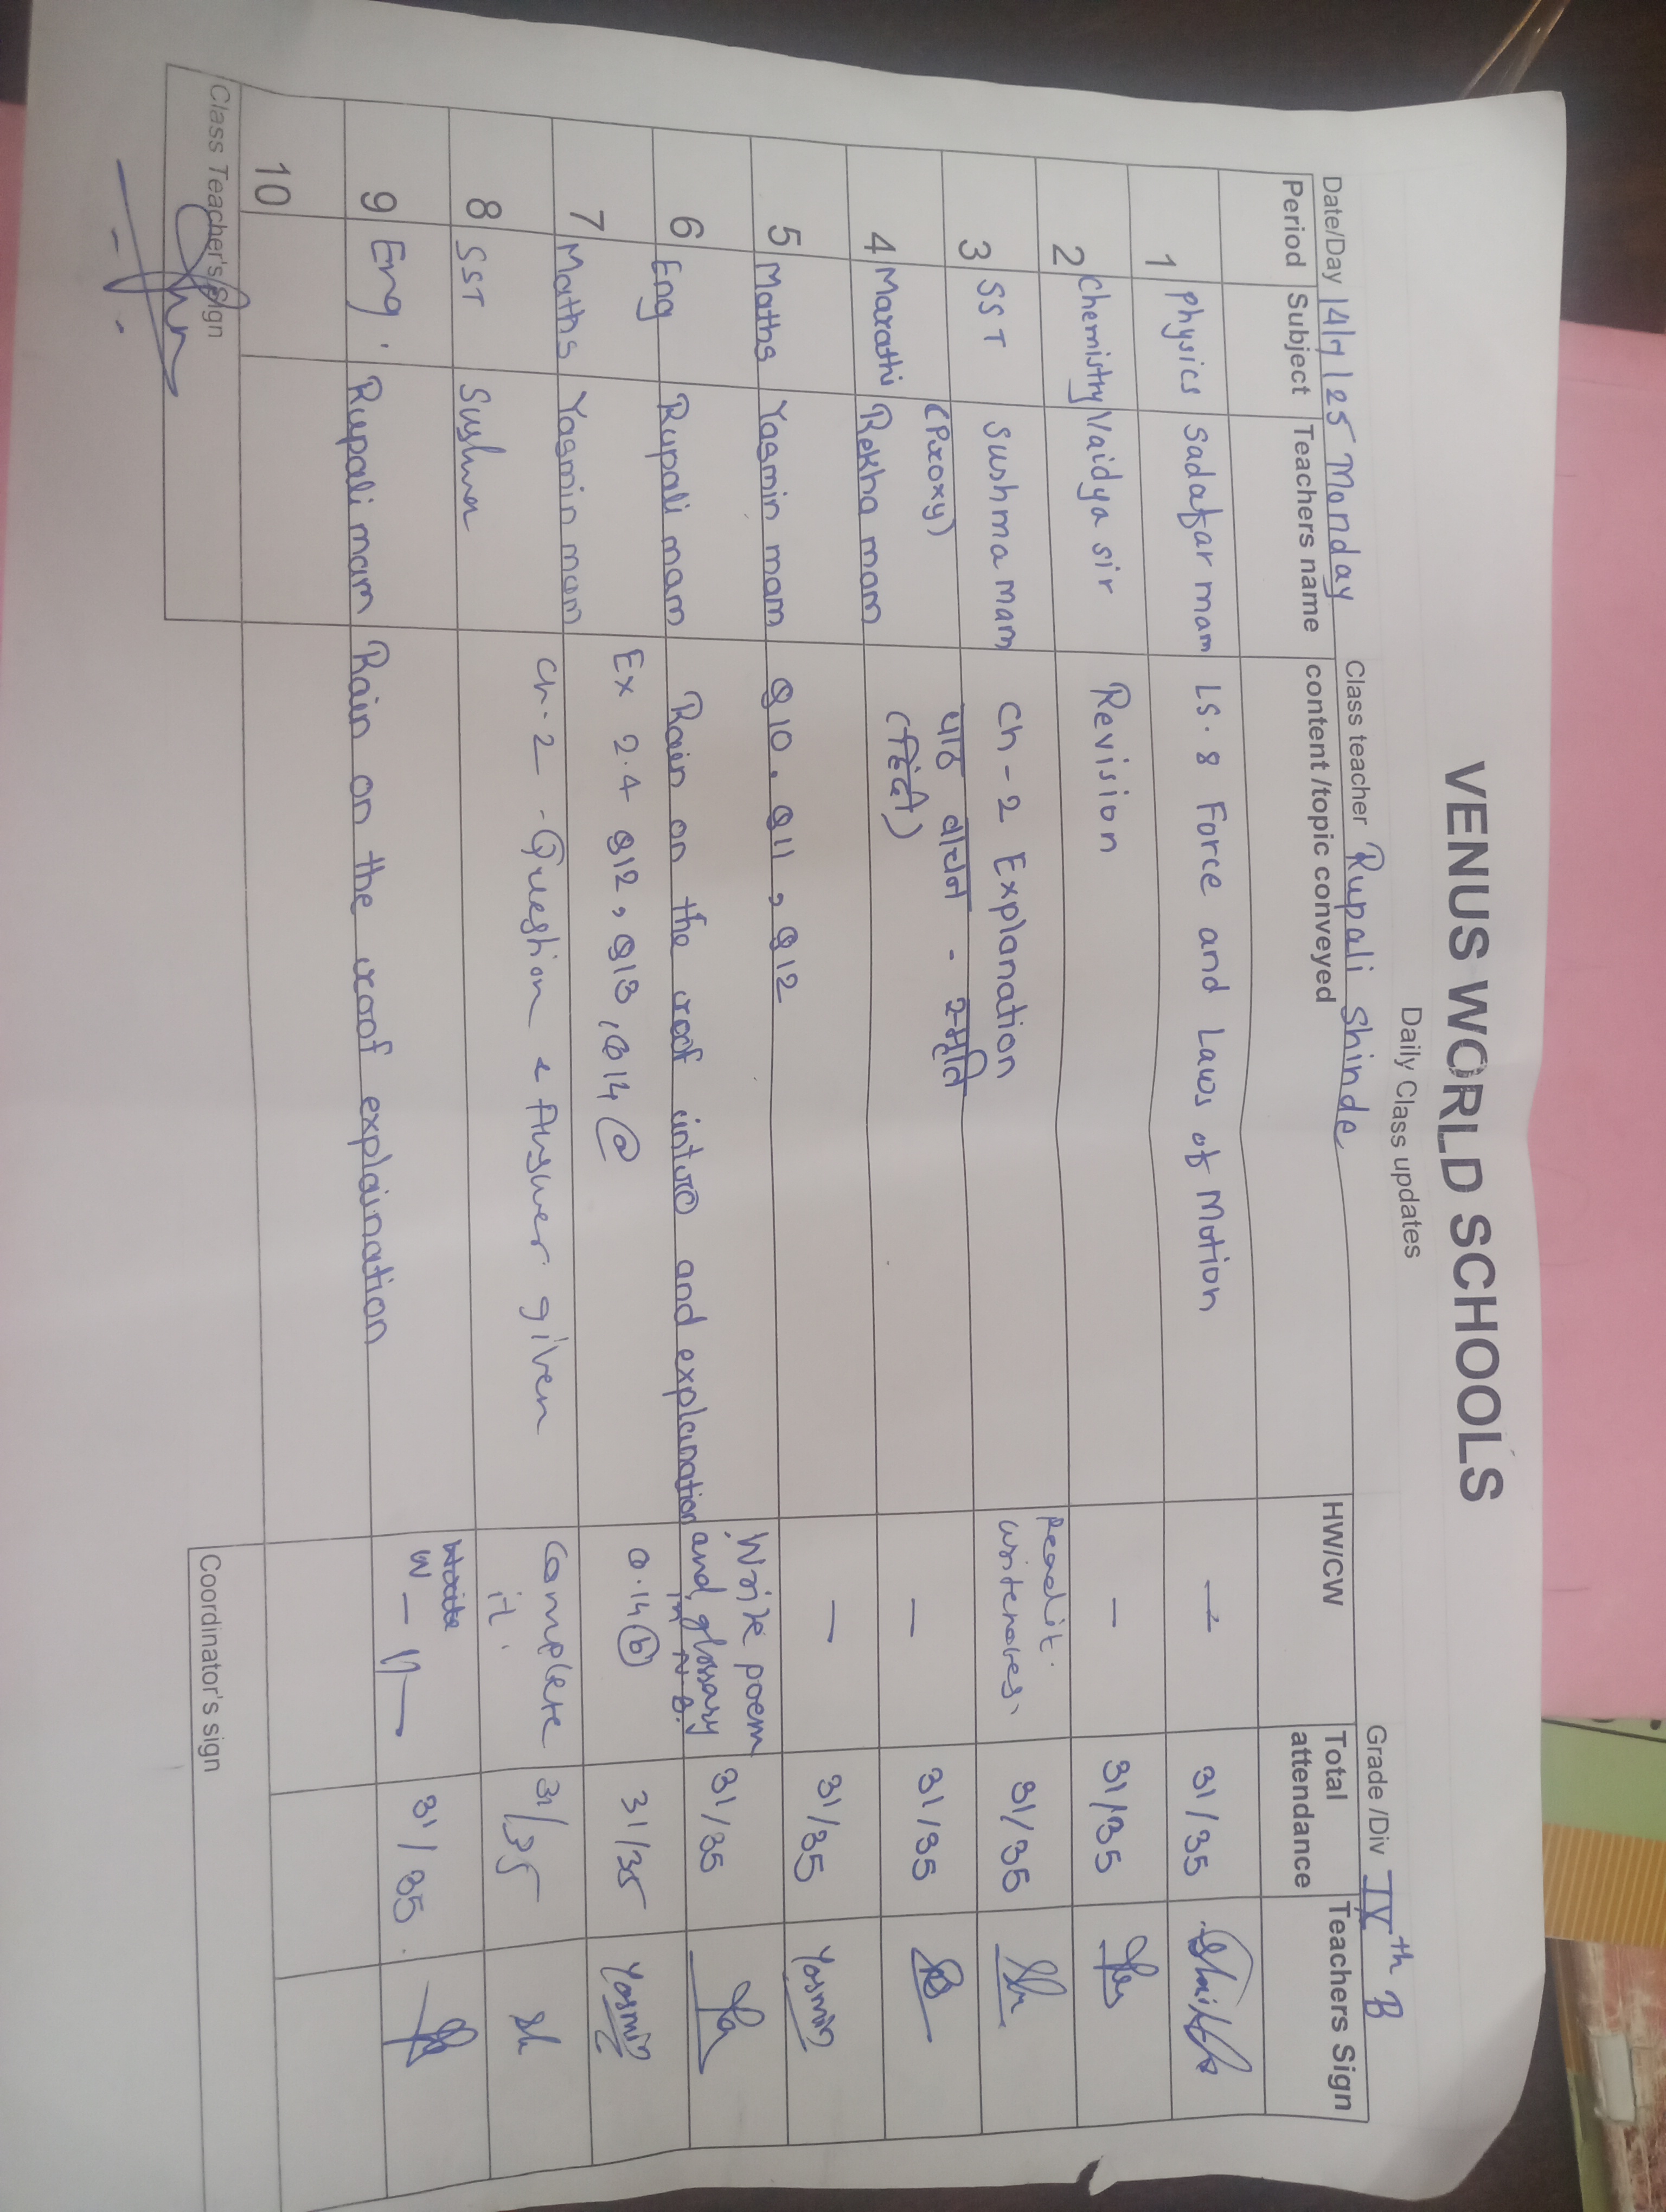 VENUS WORLD SCHOOLS
Daily Class updates
Date/Day 14/7/25 Monday Class teacher Rupali Shinde Grade /Div IXth B
Period Subject Teachers name content /topic conveyed HW/CW Total attendance Teachers Sign
1 Physics Sadafar mam LS. 8 Force and Laws of Motion — 31/35
2 Chemistry Vaidya sir Revision — 31/35
3 SST Sushma mam Ch-2 Explanation Readit. 31/35
4 Marathi (Proxy) Rekha mam पाठ वाचन - स्मृति (हिंदी) — 31/35
5 Maths Yasmin mam Q10, Q11, Q12 — 31/35 Yasmin
6 Eng Rupali mam Rain on the roof intro and explaination Write poem and glossary in N.B. 31/35
7 Maths Yasmin mam Ex 2.4 Q12, Q13, Q14 @ Q.14 (b) 31/35 Yasmin
8 SST Sushma Ch-2 - Question & Answer given Complete it. 31/35 Sh
9 Eng. Rupali mam Rain on the roof explaination W - 11 — 31/35
10
Class Teacher's Sign Coordinator's sign